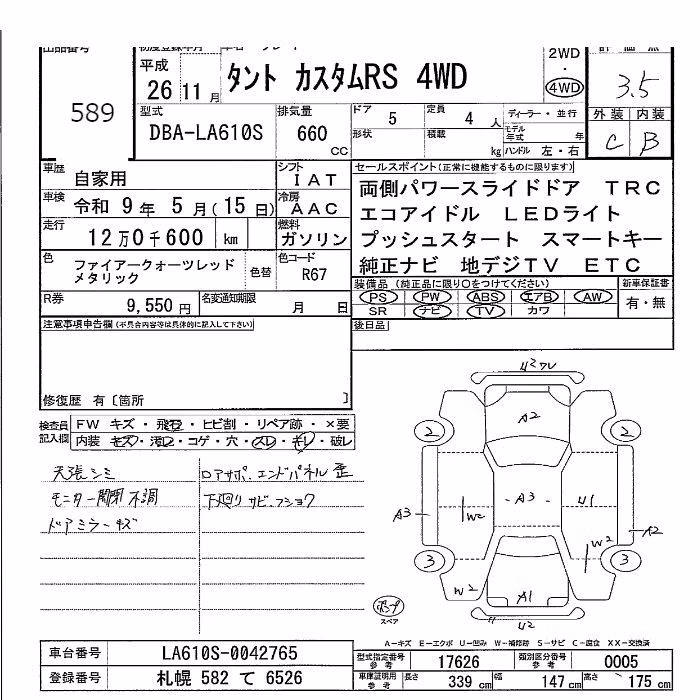 589
平成
26 11 月
タント カスタムRS 4WD
2WD
・
4WD
3.5
型式
DBA-LA610S
排気量
660
CC
ドア
5
定員
4 人
形状
積載
kg
ディーラー・並行
モデル年式
年
ハンドル 左・右
外装 内装
C B
車歴
自家用
シフト
IAT
車検
令和 9 年 5 月 (15 日)
冷房
AAC
走行
12万0千600 km
燃料
ガソリン
色
ファイアークォーツレッド
メタリック
色替
色コード
R67
R券
9,550 円
名変通知期限
月 日
セールスポイント(正常に機能するものに限ります)
両側パワースライドドア TRC
エコアイドル LEDライト
プッシュスタート スマートキー
純正ナビ 地デジTV ETC
装備品 (純正品に限り○をつけてください)
新車保証書
PS PW ABS エアB AW
SR ナビ TV カワ
有・無
後日品
注意事項申告欄(不具合内容等は具体的に記入して下さい)
修復歴 有〔箇所 〕
検査員
記入欄
FW キズ・飛石・ヒビ割・リペア跡・×要
内装 キズ・汚レ・コゲ・穴・スレ・キレ・破レ
天張シミ
モニター開閉不調
ドアミラーキズ
ロアサポ、エンドパネル 歪
下廻り サビ、フショク
U2ワレ
A2
2
2
A3
W2
A3
U1
W2
A2
3
3
W2
A1
U2
スペア
A-キズ E-エクボ U-凹み W-補修跡 S-サビ C-腐食 XX-交換済
車台番号
LA610S-0042765
登録番号
札幌 582 て 6526
型式指定番号
参考
17626
類別区分番号
参考
0005
車庫証明用
参考
長さ
339 cm
幅
147 cm
高さ
175 cm